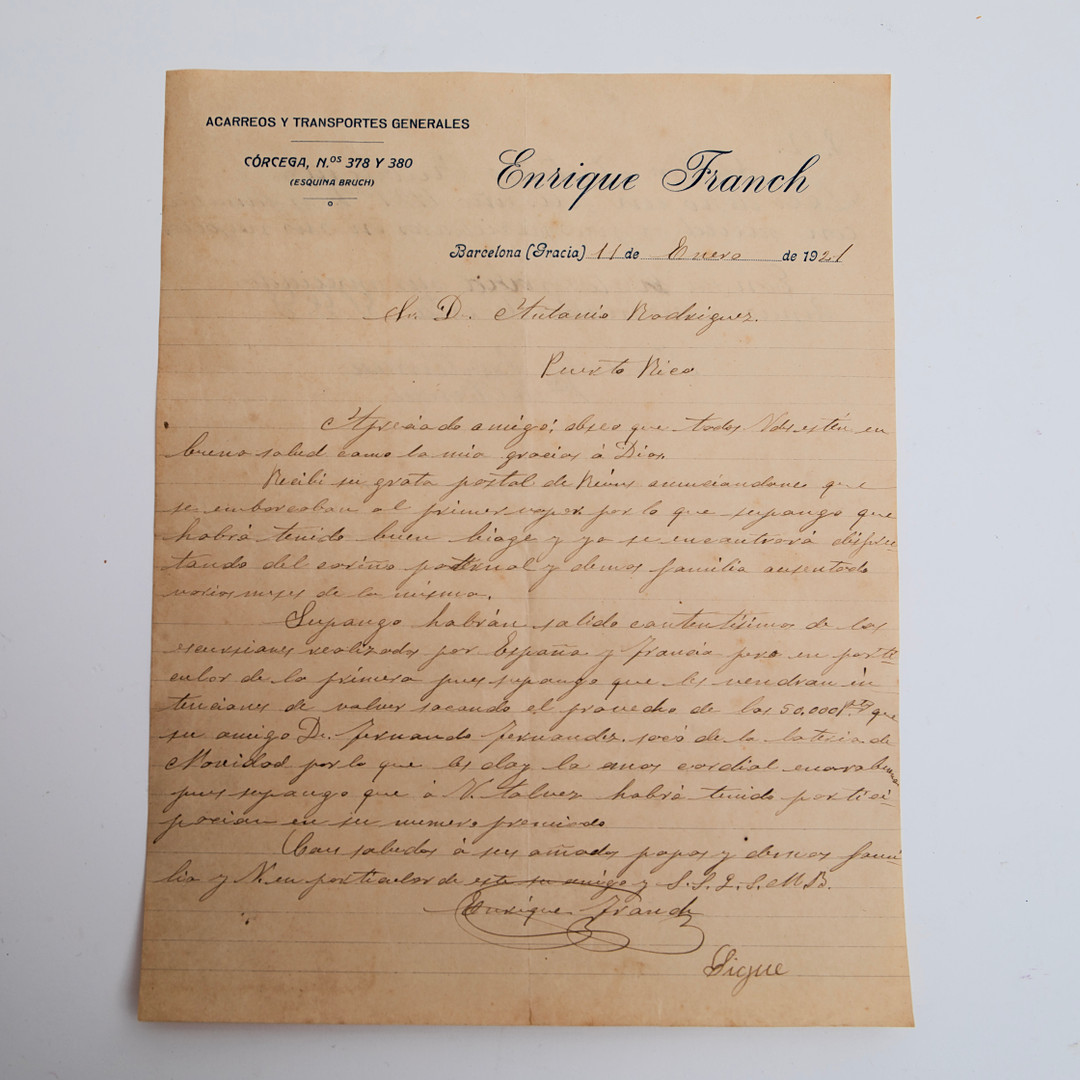 ACARREOS Y TRANSPORTES GENERALES
CÓRCEGA, N.ºˢ 378 Y 380
(ESQUINA BRUCH)
Enrique Franch
Barcelona (Gracia) 11 de Enero de 1921
Sr. D. Antonio Rodriguez.
Puerto Rico
Apreciado amigo: deseo que todos Vds estén en
buena salud como la mia gracias á Dios.
Recibí su grata postal de Reims anunciandome que
se embarcaban al primer vapor por lo que supongo que
habrá tenido buen biage y ya se encontrará disfru-
tando del cariño paternal y demas familia ausentado
varios meses de la misma.
Supongo habrán salido contentísimos de las
escursiones realizadas por España y Francia pero en parti-
cular de la primera pues supongo que les vendran in
tenciones de volver sacando el provecho de las 50,000 Ptˢ que
su amigo D. Fernando Fernandez sacó de la loteria de
Navidad por lo que les doy la mas cordial enorabuena
pues supongo que á V. talvez habrá tenido partici-
pacion en su numero premiado
Con saludos á sus amados papas y demas fami
lia y V. en particular de este su amigo y S.S.Q.S.M.B.
Enrique Franch
Sigue